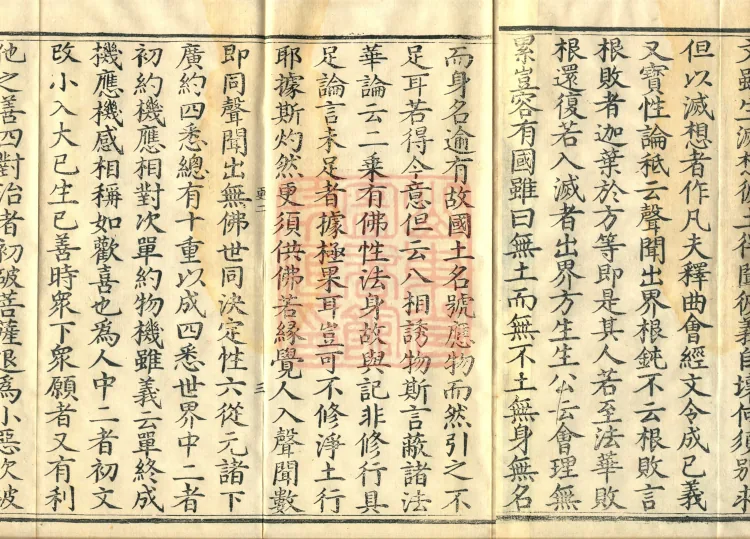 文雖生滅想
但以滅想者作凡夫釋曲會經文令成已義
又寶性論秪云聲聞出界根鈍不云根敗言
根敗者迦葉於方等即是其人若至法華敗
根還復若入滅者出界方生生公云會理無
累豈容有國雖曰無土而無不土無身無名
而身名逾有故國土名號應物而然引之不
足耳若得今意但云八相誘物斯言蔽諸法
華論云二乗有佛性法身故與記非修行具
足論言未足者據極果耳豈可不修淨土行
耶據斯灼然更須供佛若緣覺人入聲聞數
更二
三
即同聲聞出無佛世同決定性六從元諸下
廣約四悉總有十重以成四悉世界中二者
初約機應相對次單約物機雖義云單終成
機應機感相稱如歡喜也為人中二者初文
改小入大已生已善時眾下眾願者又有利
他之善四對治者初破菩薩退為小惡次破